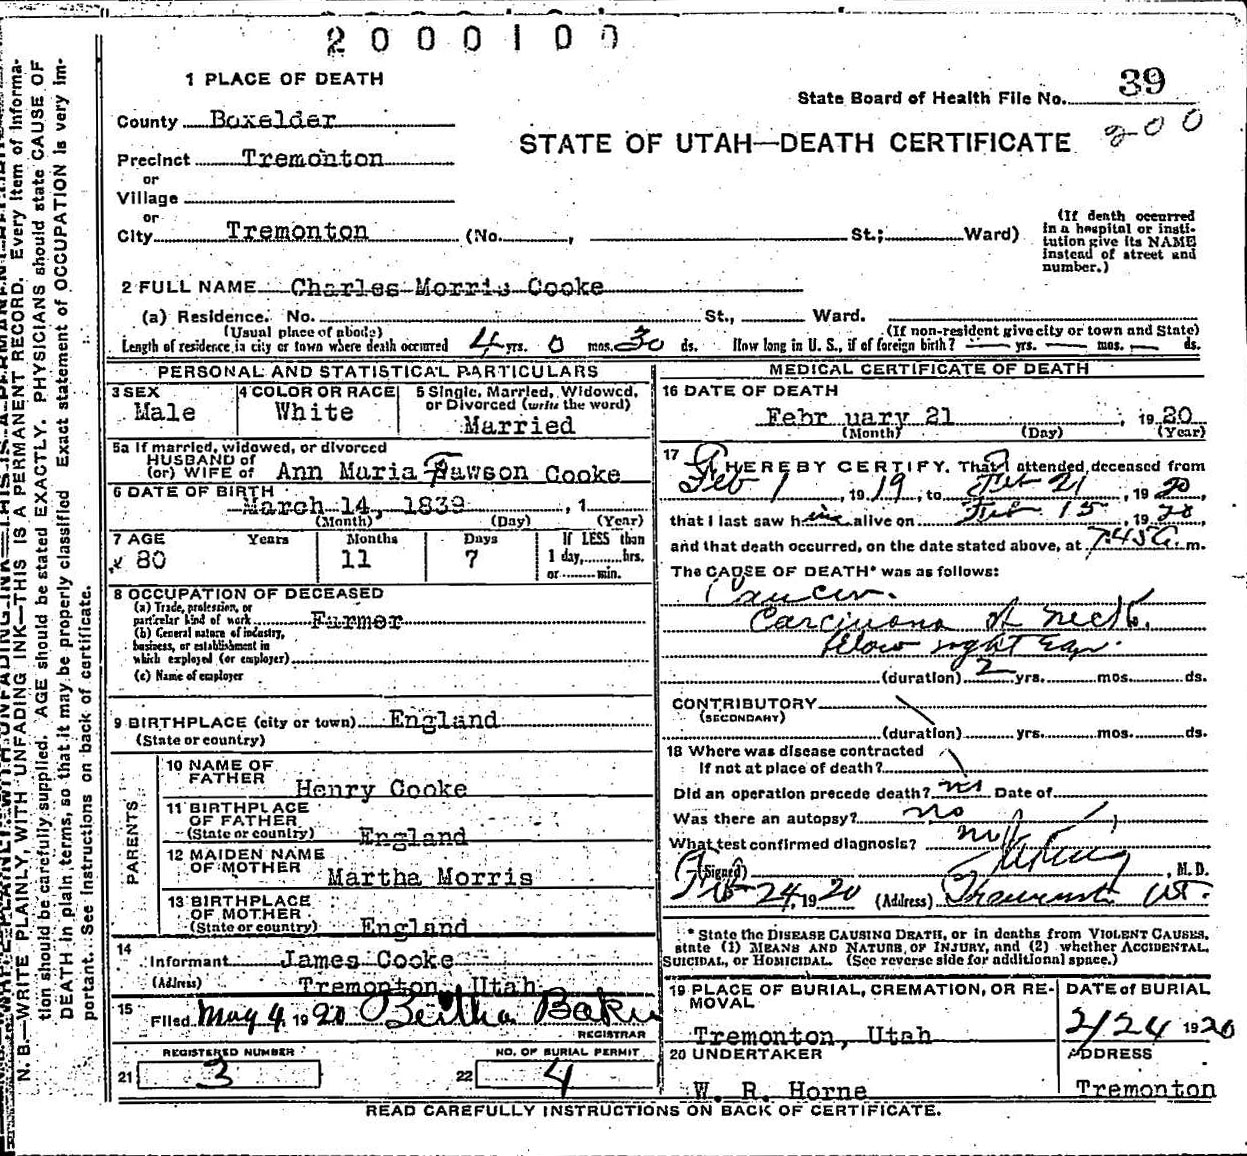 2000100
1 PLACE OF DEATH
State Board of Health File No. 39
County Boxelder
STATE OF UTAH—DEATH CERTIFICATE 200
Precinct Tremonton
or
Village
or
City Tremonton (No. , St.; Ward)
(If death occurred in a hospital or insti-
tution give its NAME instead of street and number.)
2 FULL NAME Charles Morris Cooke
(a) Residence. No. St., Ward.
(Usual place of abode) (If non-resident give city or town and State)
Length of residence in city or town where death occurred 4 yrs. 0 mos. 30 ds. How long in U. S., if of foreign birth? — yrs. — mos. — ds.
PERSONAL AND STATISTICAL PARTICULARS
3 SEX
Male
4 COLOR OR RACE
White
5 Single, Married, Widowed,
or Divorced (write the word)
Married
5a If married, widowed, or divorced
HUSBAND of
(or) WIFE of Ann Maria Dawson Cooke
6 DATE OF BIRTH
March 14, 1839 , 1
(Month) (Day) (Year)
7 AGE Years Months Days If LESS than
80 11 7 1 day, hrs.
or min.
8 OCCUPATION OF DECEASED
(a) Trade, profession, or
particular kind of work Farmer
(b) General nature of industry,
business, or establishment in
which employed (or employer)
(c) Name of employer
9 BIRTHPLACE (city or town) England
(State or country)
PARENTS
10 NAME OF
FATHER Henry Cooke
11 BIRTHPLACE
OF FATHER
(State or country) England
12 MAIDEN NAME
OF MOTHER Martha Morris
13 BIRTHPLACE
OF MOTHER
(State or country) England
14
Informant James Cooke
(Address) Tremonton, Utah
15
Filed May 4, 1920 Bertha Baker
REGISTRAR
REGISTERED NUMBER
21 3
NO. OF BURIAL PERMIT
22 4
MEDICAL CERTIFICATE OF DEATH
16 DATE OF DEATH
February 21 , 1920
(Month) (Day) (Year)
17 I HEREBY CERTIFY, That I attended deceased from
Feb 1 , 1919, to Feb 21 , 1920,
that I last saw him alive on Feb 15 , 1920,
and that death occurred, on the date stated above, at 7:45 a. m.
The CAUSE OF DEATH* was as follows:
Cancer.
Carcinoma of neck.
Below right Ear.
(duration) 2 yrs. mos. ds.
CONTRIBUTORY
(SECONDARY)
(duration) yrs. mos. ds.
18 Where was disease contracted
If not at place of death?
Did an operation precede death? no Date of
Was there an autopsy? no
What test confirmed diagnosis?
(Signed) , M. D.
Feb 24, 1920 (Address) Tremonton Ut.
* State the DISEASE CAUSING DEATH, or in deaths from VIOLENT CAUSES,
state (1) MEANS AND NATURE OF INJURY, and (2) whether ACCIDENTAL,
SUICIDAL, or HOMICIDAL. (See reverse side for additional space.)
19 PLACE OF BURIAL, CREMATION, OR RE-
MOVAL
Tremonton, Utah
DATE of BURIAL
2/24 1920
20 UNDERTAKER
W. R. Horne
ADDRESS
Tremonton
READ CAREFULLY INSTRUCTIONS ON BACK OF CERTIFICATE.
N. B.—WRITE PLAINLY, WITH UNFADING INK—THIS IS A PERMANENT RECORD. Every item of informa-
tion should be carefully supplied. AGE should be stated EXACTLY. PHYSICIANS should state CAUSE OF
DEATH in plain terms, so that it may be properly classified. Exact statement of OCCUPATION is very im-
portant. See instructions on back of certificate.